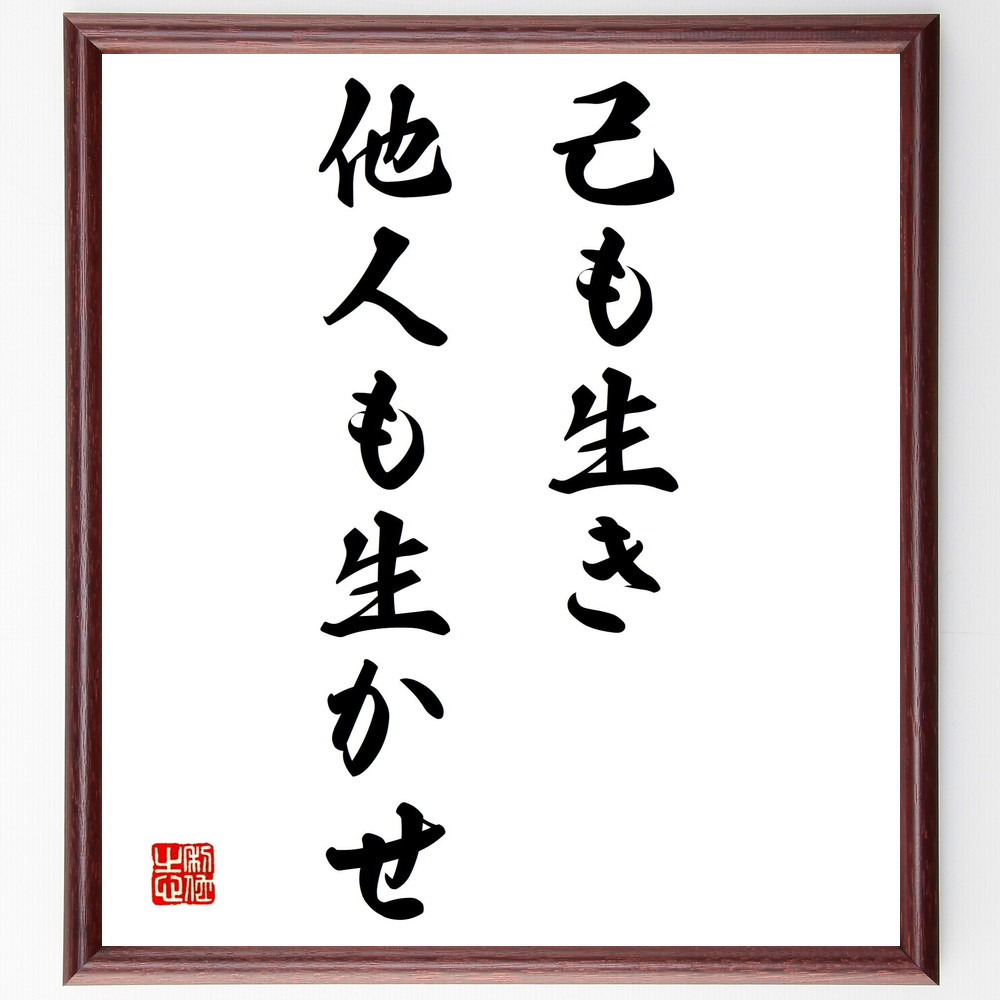 己も生き
他人も生かせ